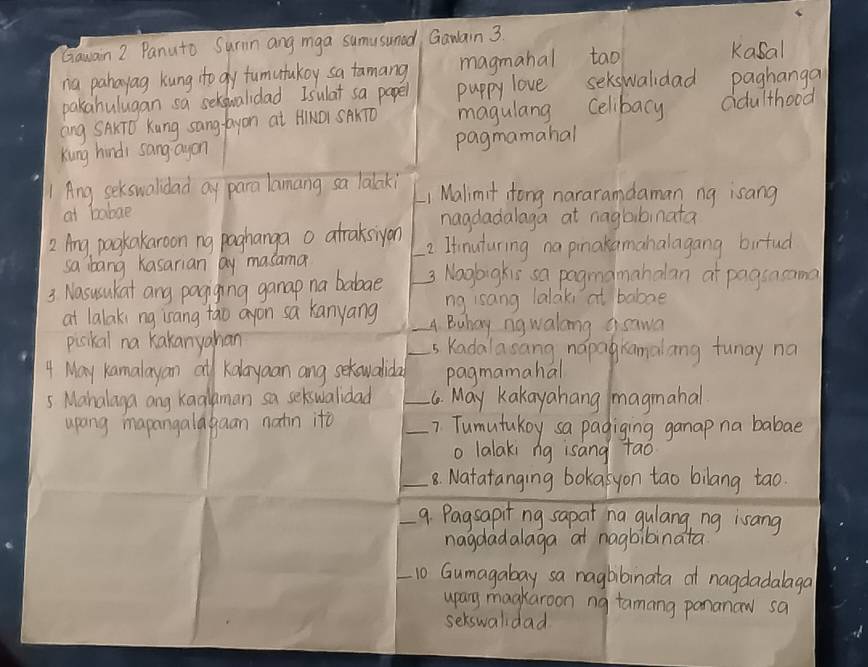 Gawain 2 Panuto Suriin ang mga sumusunod
na pahayag kung ito ay tumutukoy sa tamang
pakahulugan sa sekswalidad Isulat sa papel
ang SAKTO kung sang-ayon at HINDI SAKTO
kung hindi sang ayon
1 Ang sekswalidad ay para lamang sa lalaki
at babae
2 Ang pagkakaroon ng paghanga o atraksiyon
sa ibang kasarian ay masama
3. Nasusukat ang pagiging ganap na babae
at lalaki ng isang tao ayon sa kanyang
pisikal na kakanyahan
4 May kamalayan at kalayaan ang sekswalidad
5 Mahalaga ang kaalaman sa sekswalidad
upang mapangalagaan natin ito
Gawain 3.
magmahal tao Kasal
puppy love sekswalidad paghanga
magulang Celibacy adulthood
pagmamahal
_1 Malimit itong nararamdaman ng isang
nagdadalaga at nagbibinata
_2 Itinuturing na pinakamahalagang birtud
_3 Nagbigkis sa pagmamahalan at pagsasama
ng isang lalaki at babae
_4 Buhay ng walang asawa
_5 Kadalasang napagkamalang tunay na
pagmamahal
_6. May kakayahang magmahal.
_7. Tumutukoy sa pagiging ganap na babae
o lalaki ng isang tao.
_8. Natatanging bokasyon tao bilang tao.
_9. Pagsapit ng sapat na gulang ng isang
nagdadalaga at nagbibinata.
_10 Gumagabay sa nagbibinata at nagdadalaga
upang magkaroon ng tamang pananaw sa
sekswalidad